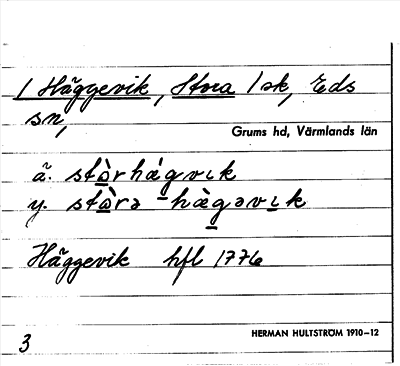 1 Häggevik, Stora 1 sk, Eds
sn,
Grums hd, Värmlands län
ä. stòrhǽgvɩk
y. stòrə -hæ̀gəvɩk
Häggevik hfl 1776
HERMAN HULTSTRÖM 1910–12
3